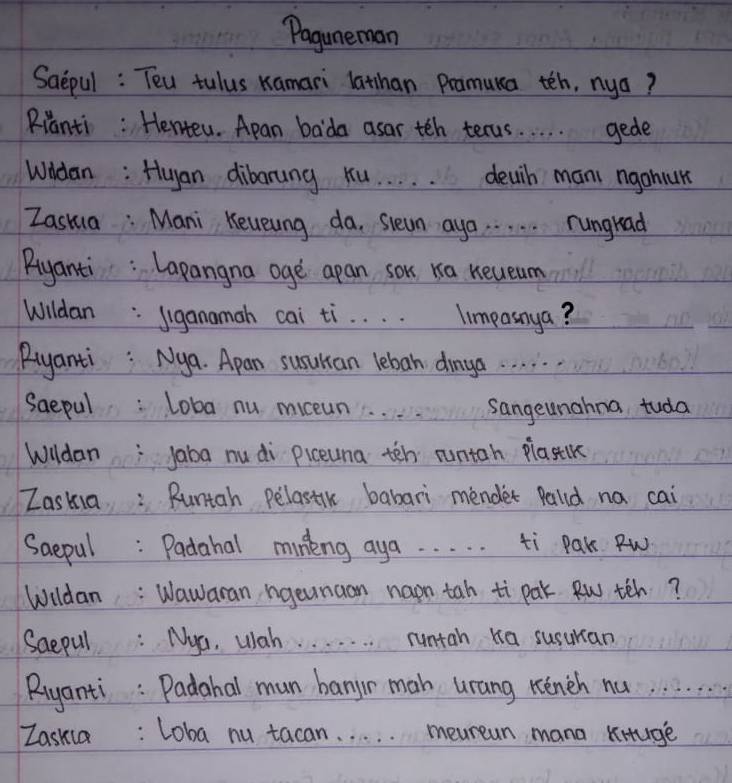 Paguneman
Saépul : Teu tulus kamari latihan Pramuka téh, nya ?
Rianti : Henteu. Apan ba'da asar téh terus ..... gede
Wildan : Hujan dibarung ku ..... deuih mani ngahiuk
Zaskia : Mani keueung da. Sieun aya ..... rungkad
Riyanti : Lapangna ogé apan sok ka keueum
Wildan : Jiganamah cai ti .... limpasnya ?
Riyanti : Nya. Apan susukan lebah dinya ......
Saepul : Loba nu miceun ..... sangeunahna tuda
Wildan : Jaba nu di piceuna téh runtah plastik
Zaskia : Runtah pélastik babari méndét palid na cai
Saepul : Padahal mindeng aya ..... ti Pak RW
Wildan : Wawaran ngeunaan naon tah ti pak RW téh ?
Saepul : Nya, ulah ....... runtah ka susukan
Riyanti : Padahal mun banjir mah urang kénéh nu .......
Zaskia : Loba nu tacan ..... meureun mana kitugé